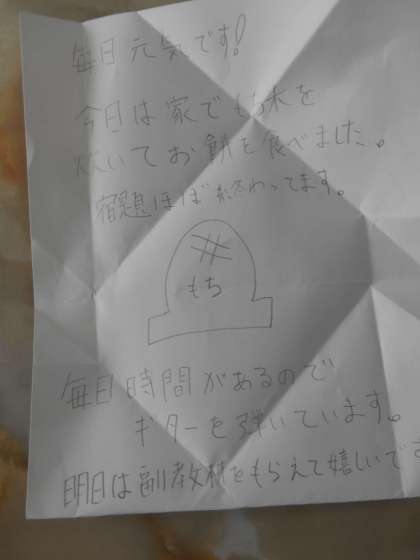 毎日元気です!
今日は家でもち米を
炊いてお餅を食べました。
宿題ほぼ終わってます。
もち
毎日時間があるので
ギターを弾いています。
明日は副教材をもらえて嬉しいです